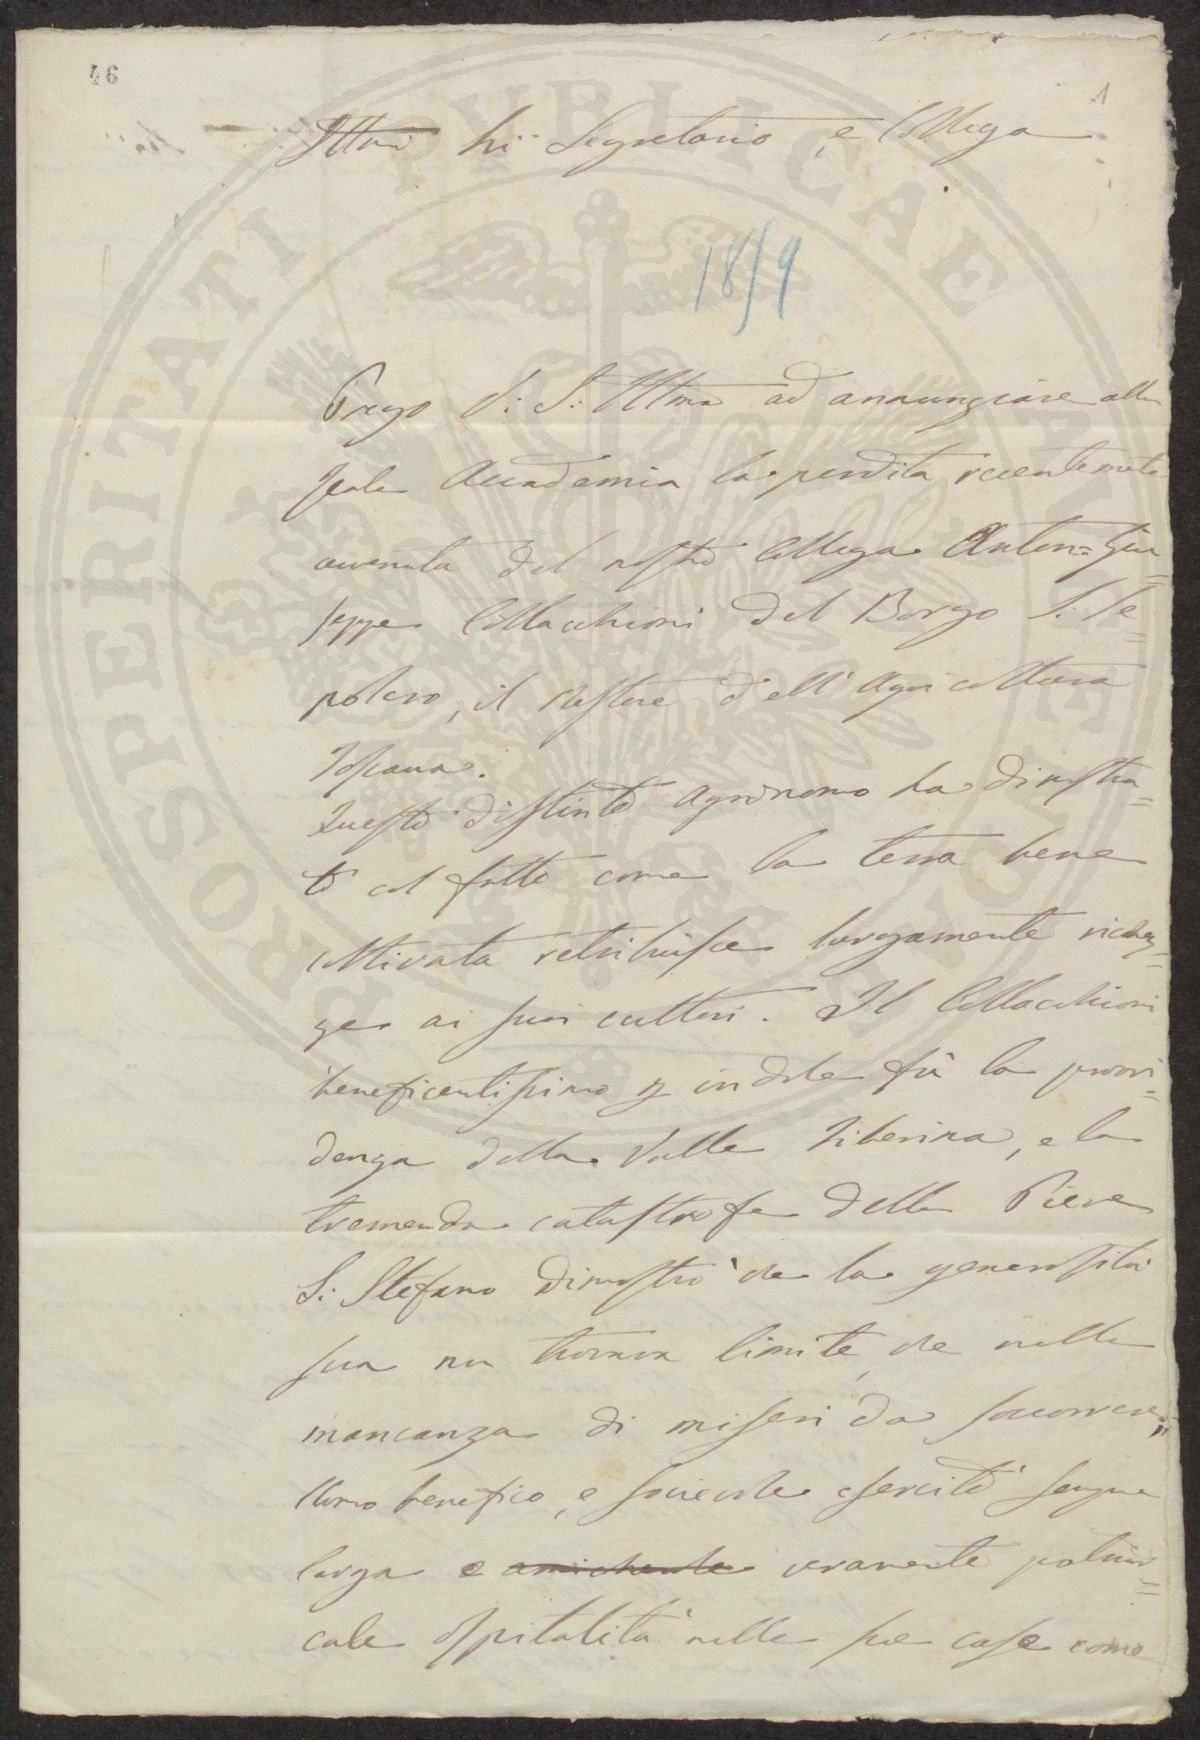 46
1
Ill.mo Sig. Segretario, e Collega
18/9
Prego V: S: Ill.ma ad annunziare alla
reale Accademia la perdita recentemente
avvenuta del nostro Collega Anton=Giu=
seppe Collacchioni del Borgo S. Se=
polcro, il Nestore dell'Agricoltura
Toscana.
Questo distinto Agronomo ha dimostra=
to col fatto come la terra bene
coltivata retribuisce largamente ricchez=
ze ai suoi cultori. Il Collacchioni
beneficentissimo p indole fù la provvi=
denza della Valle Tiberina, e la
tremenda catastrofe della Pieve
S: Stefano dimostrò che la generosità
sua non trovava limite, che nella
mancanza di miseri da soccorrere.
Uomo benefico, e socievole esercitò sempre
larga e amichevole veramente patriar=
cale ospitalità nelle sue case come